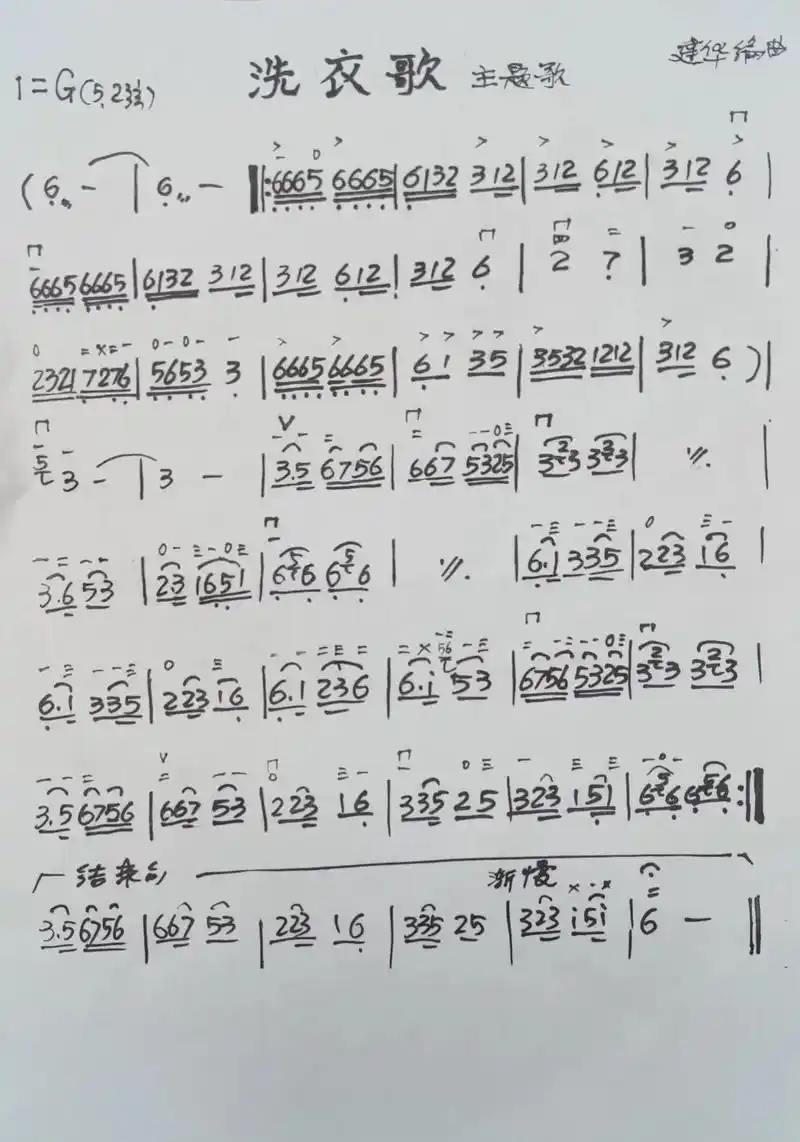 洗衣歌 主题歌 建华编曲
1=G(5̣ 2弦)
(6̣ - | 6̣ - ‖: 6̣6̣6̣5̣ 6̣6̣6̣5̣ | 6̣132 312 | 312 6̣12 | 312 6̣ |
6̣6̣6̣5̣ 6̣6̣6̣5̣ | 6̣132 312 | 312 6̣12 | 312 6̣ | 2 7̣ | 3 2 |
2321 7̣27̣6̣ | 5̣6̣5̣3̣ 3̣ | 6̣6̣6̣5̣ 6̣6̣6̣5̣ | 6̣1 35 | 3532 1212 | 312 6̣ )|
3 - | 3 - | 3.5 6756 | 667 5325 | 323 323 | 〃 |
3.6 53 | 23 16̣5̣1 | 6̣5̣6̣ 6̣5̣6̣ | 〃 | 6̣.1 335 | 223 16̣ |
6̣.1 335 | 223 16̣ | 6̣.1 236 | 6.i 56 53 | 6756 5325 | 323 323 |
3.5 6756 | 667 53 | 223 16̣ | 335 25 | 323 15̣1 | 6̣5̣6̣ 6̣5̣6̣ :‖
结束句 渐慢
3.5 6756 | 667 53 | 223 16̣ | 335 25 | 323 i5i | 6 - ‖